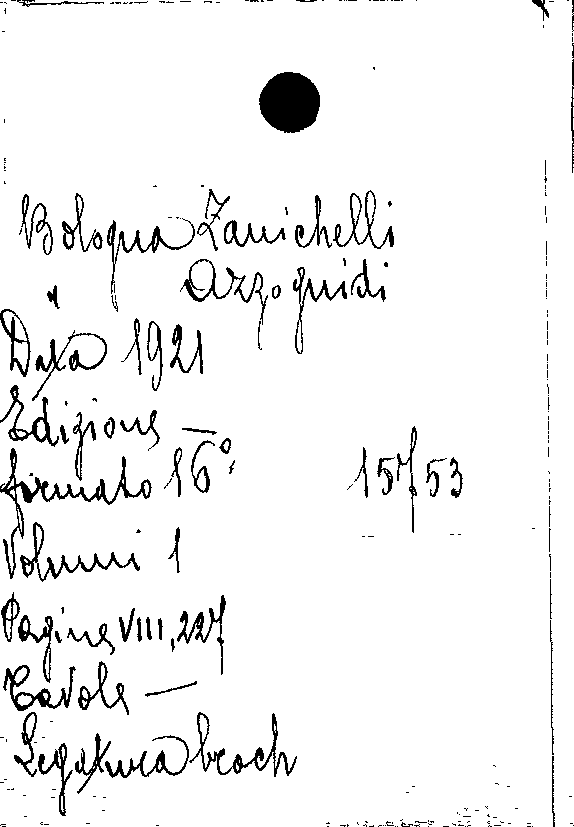 Bologna Zanichelli
" Azzoguidi
Data 1921
Edizione —
formato 16°
15753
Volumi 1
Pagine VIII, 227
Tavole —
Legatura broch